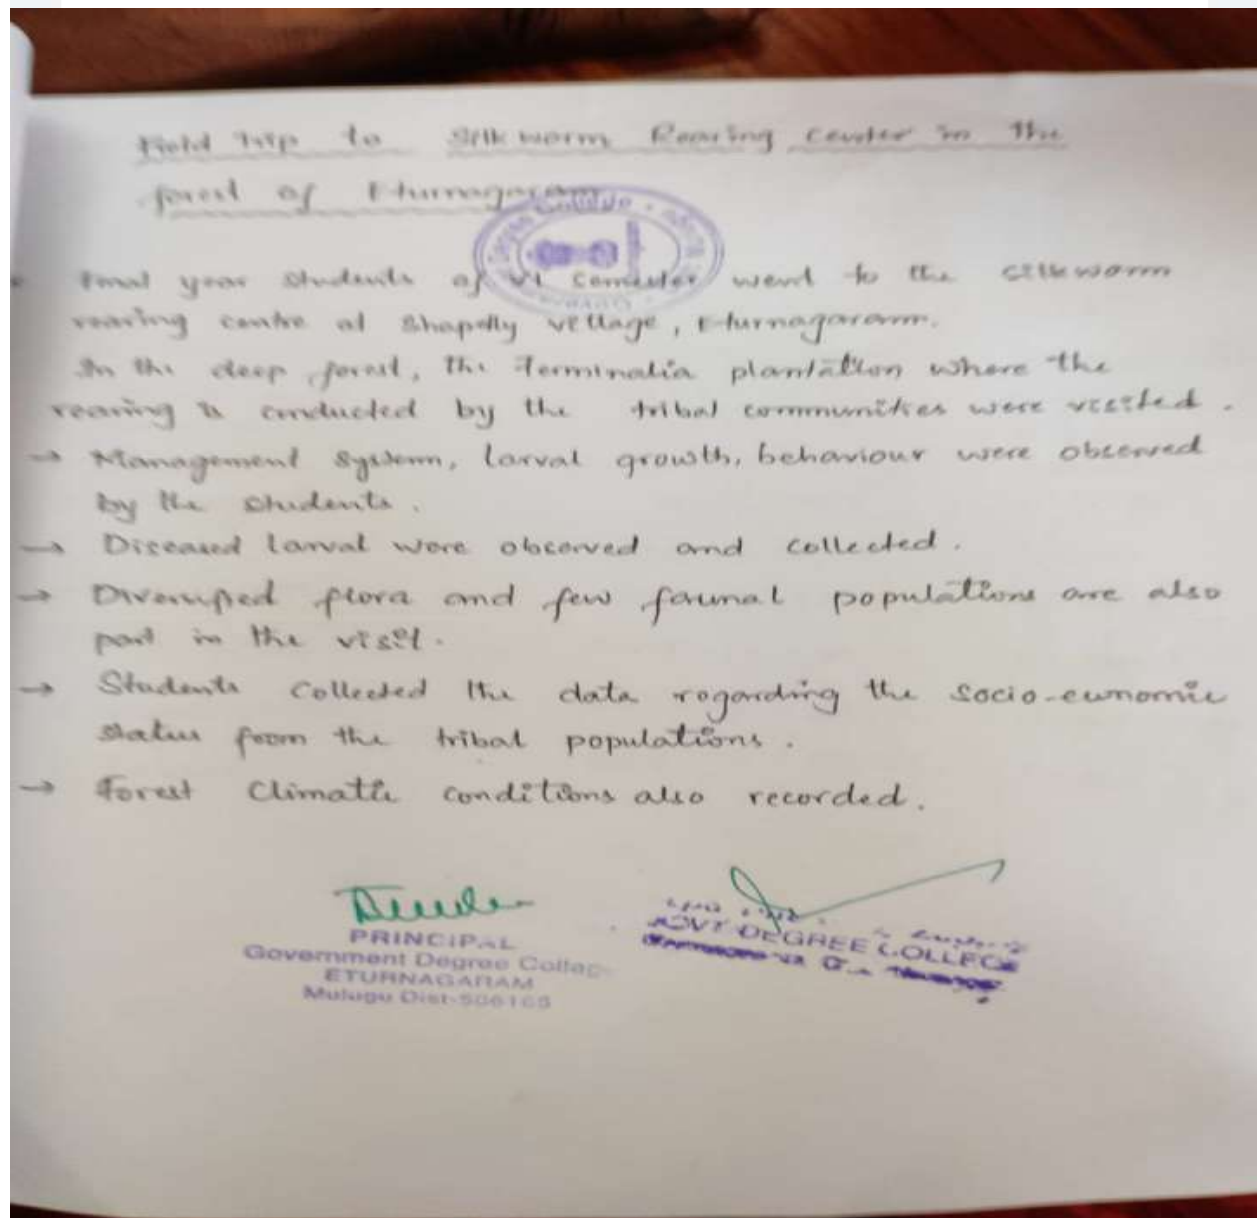 Field trip to Silk worm Rearing Center in the
forest of Eturnagaram
Final year Students of VI Semester went to the silkworm
rearing centre at Shapally village, Eturnagaram.
In the deep forest, the Terminalia plantation where the
rearing is conducted by the tribal communities were visited.
→ Management System, larval growth, behaviour were observed
by the students.
→ Diseased larval were observed and collected.
→ Diversified flora and few faunal populations are also
part in the visit.
→ Students collected the data regarding the socio-economic
status from the tribal populations.
→ Forest Climatic conditions also recorded.
PRINCIPAL
Government Degree College
ETURNAGARAM
Mulugu Dist-506165
GOVT DEGREE COLLEGE